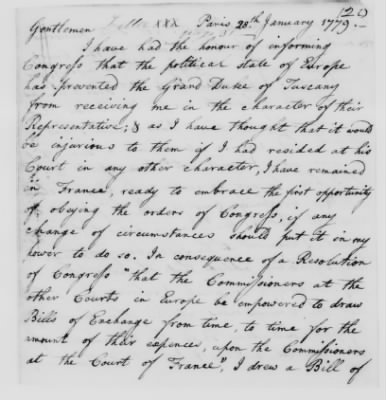 (20)
Gentlemen Paris 28th January 1779.—
I have had the honour of informing
Congress that the political state of Europe
has prevented the Grand Duke of Tuscany
from receiving me in the character of their
Representative; & as I have thought that it would
be injurious to them if I had resided at his
Court in any other character, I have remained
in France, ready to embrace the first opportunity
of obeying the orders of Congress, if any
change of circumstances should put it in my
power to do so. In consequence of a Resolution
of Congress "that the Commissioners at the
other Courts in Europe be empowered to draw
Bills of Exchange from time, to time for the
amount of their expences, upon the Commissioners
at the Court of France", I drew a Bill of